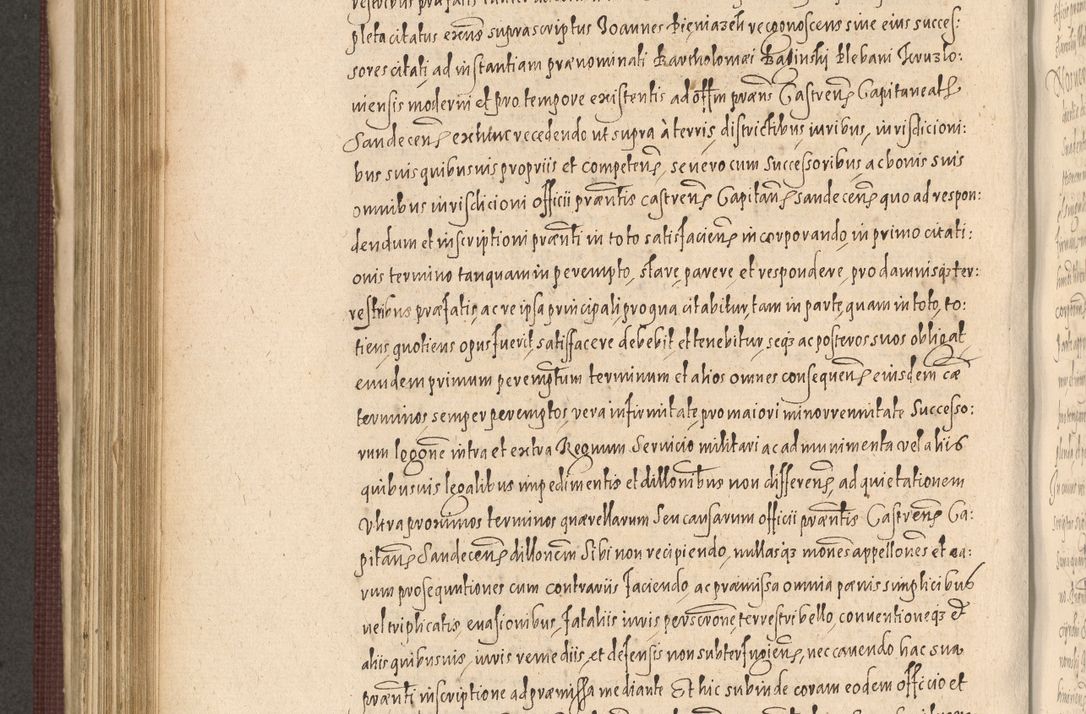 pleta citatus exns suprascriptus Joannes Pieniazek recognoscens sive eius succes:
sores citati ad instantiam prænominati Bartholomæi Babinski Plebani Jeruzlo:
viensis moderni et pro tempore existentis ad offm præns Castrens Capitaneat
Sandecens ex hinc recedendo ut supra à terris, districtibus, iuribus, iurisdicioni:
bus suis quibusuis propriis et competens, se vero cum Successoribus ac bonis suis
omnibus iurisdicioni officii præntis castrens Capitan Sandecens quo ad respon:
dendum et inscriptioni prænti in toto satisfaciens incorporando, in primo citati:
onis termino tanquam in perempto, stare, parere et respondere, pro damnisq ter:
restribus præfatis, ac re ipsa principali pro qua citabitur, tam in parte, quam in toto, to:
tiens, quotiens opus fuerit, satisfacere debebit et tenebitur, seq ac posteros suos obligat
eundem primum peremptum terminum et alios omnes consequens eiusdem cæ
terminos semper peremptos, vera infirmitate pro maiori minorve unitate Successo:
rum logone intra et extra Regnum Servicio militari ac ad munimenta vel aliis
quibusuis legalibus impedimentis et dillonibus non differens, ad quietationem
Ultra proximos terminos quærellarum seu causarum officii præntis Castrens Ca:
pitan Sandecens dillonem Sibi non recipiendo, nullasq mones appellones et ea:
rum prosequutiones cum contrariis faciendo, ac præmissa omnia pænis simplicibus
vel triplicatis, evasionibus, fataliis iuris perscrone, terrestri bello, conventioneq et
aliis quibusuis, iuris remediis, et defensis non subterfugiens, nec cavendo hac sua
prænti inscriptione ad præmissa mediante Et hic subinde coram eodem officio et